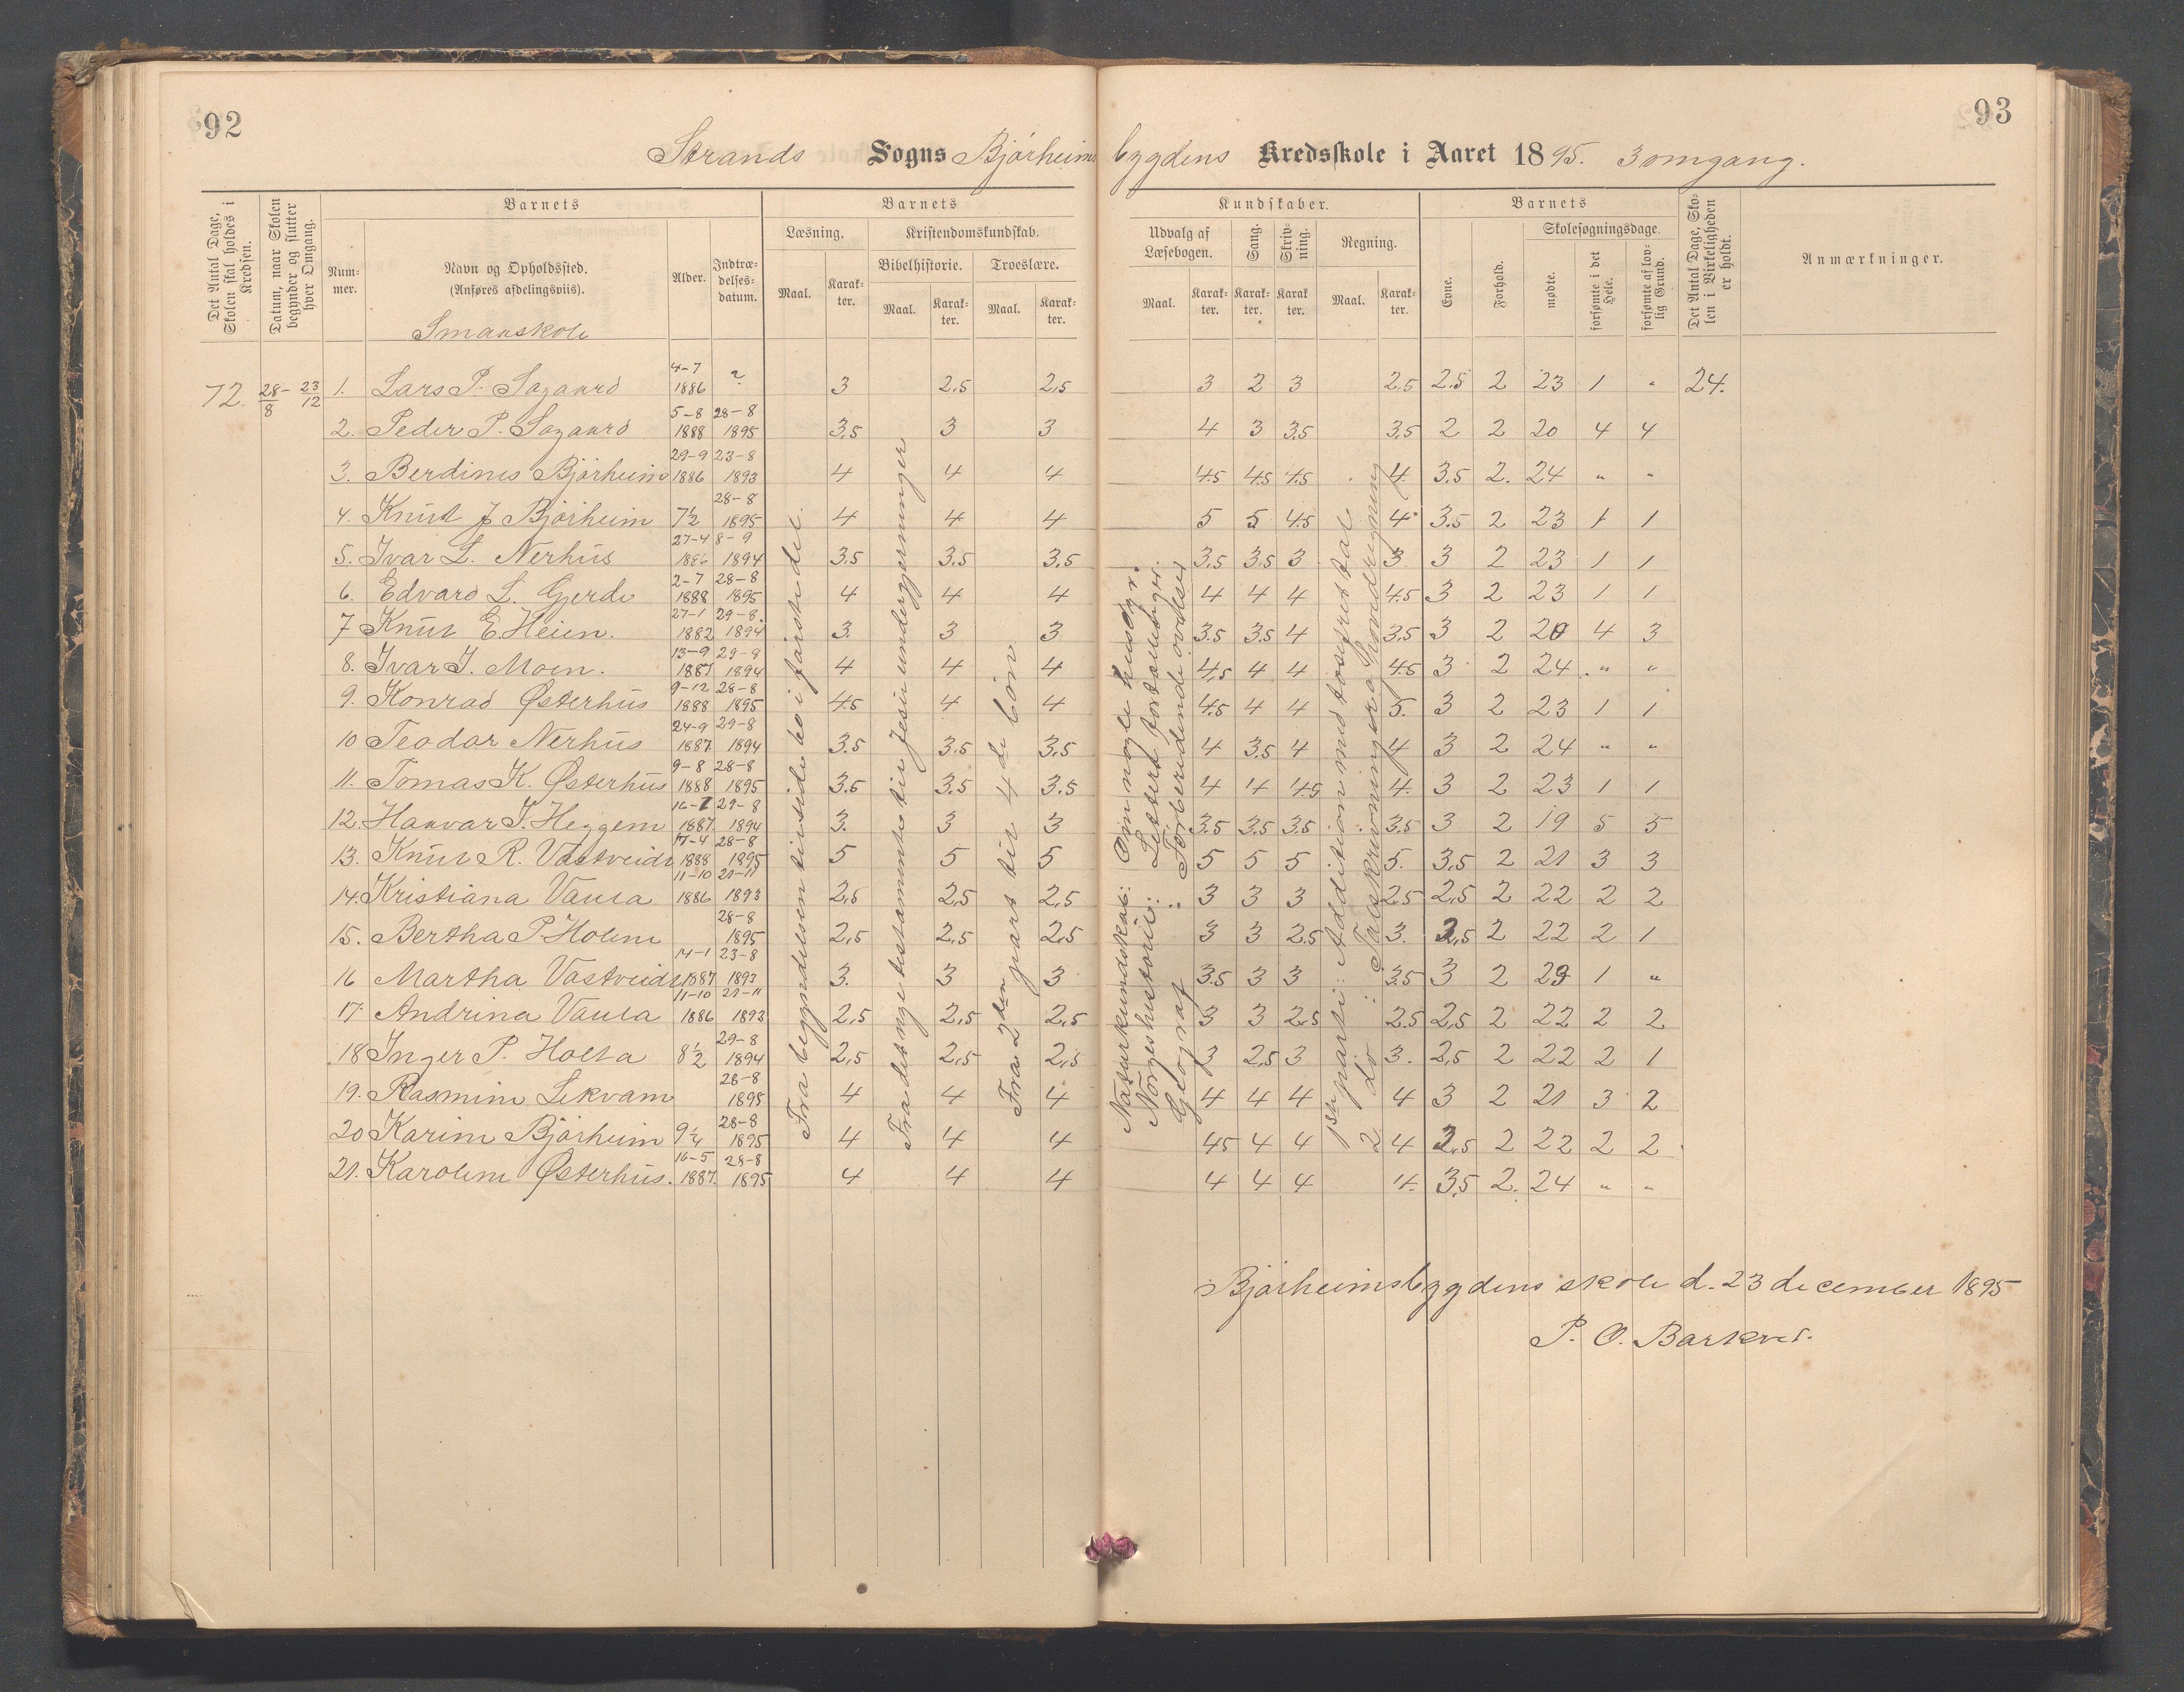 92
93
Strands Sogns Bjørheimsbygdens Kredsskole i Aaret 1895. 3 omgang.
Det Antal Dage, Skolen skal holdes i Kredsen.
Datum, naar Skolen begynder og slutter hver Omgang.
Barnets
Nummer.
Navn og Opholdssted.
(Anføres afdelingsviis).
Smaaskole
Alder.
Indtrædelsesdatum.
Barnets
Læsning.
Maal.
Karakter.
Kristendomskundskab.
Bibelhistorie.
Maal.
Karakter.
Troeslære.
Maal.
Karakter.
Kundskaber.
Udvalg af Læsebogen.
Maal.
Karakter.
Sang.
Karakter.
Skrivning.
Karakter.
Regning.
Maal.
Karakter.
Barnets
Evne.
Forhold.
Skolesøgningsdage.
mødte.
forsømte i det Hele.
forsømte af lovlig Grund.
Det Antal Dage, Skolen i Virkeligheden er holdt.
Anmærkninger.
72. 28/8 - 23/12 1. Lars P. Sagaard 4-7 1886 ? 3 2,5 2,5 3 2 3 2.5 2.5 2 23 1 " 24.
2. Peder P. Sagaard 5-8 1888 28-8 1895 3,5 3 3 4 3 3.5 3,5 2 2 20 4 4
3. Berdines Bjørheim 29-9 1886 23-8 1893 4 4 4 4.5 4.5 4.5 4. 3.5 2. 24 " "
4. Knut J Bjørheim 7½ 28-8 1895 4 4 4 5 5 4.5 4 3.5 2 23 1 1
5. Ivar L. Nerhus 27-4 1886 8-9 1894 3.5 3.5 3.5 3.5 3.5 3 3 3 2 23 1 1
6. Edvard L. Gjerde 2-7 1888 28-8 1895 4 4 4 4 4 4 4.5 3 2 23 1 1
7 Knut E. Heien. 27-1 1882 29-8. 1894 3. 3 3 3.5 3.5 4 3.5 3 2 20 4 3
8. Ivar J. Moen. 13-9 1887 29-8 1894 4 4 4 4,5 4 4 4.5 3 2 24 " "
9. Konrad Østerhus 9-12 1888 28-8 1895 4.5 4 4 4.5 4 4 5. 3 2 23 1 1
10 Teodor Nerhus 24-9 1887 29-8 1894 3.5 3.5 3,5 4 3.5 4 4 3 2 24 " "
11. Tomas K. Østerhus 9-8 1888 28-8 1895 3.5 3.5 3.5 4 4 4.5 4. 3 2 23 1 1
12. Haavar J. Heggem 1887. 29-8 1894 3. 3 3 3.5 3.5 3.5 3.5 3 2 19 5 5
13. Knut R. Vastveidt 17-4 1888 28-8 1895 5 5 5 5 5 5 5. 3,5 2 21 3 3
14. Kristiana Vaula 11-10 1886 21-11 1893 2,5 2,5 2,5 3 3 3 2.5 2,5 2 22 2 2
15. Bertha P. Holene 28-8 1895 2,5 2,5 2,5 3 3 2.5 3. 2,5 2 22 2 1
16 Martha Vastveidt 14-1 1887 23-8 1893 3. 3 3 3.5 3 3 3.5 3 2 23 1 "
17. Andrina Vaula 11-10 1886 21-11 1893 2,5 2,5 2,5 3 3 2.5 2.5 2,5 2 22 2 2
18 Inger P. Holta 8½ 29-8 1894 2,5 2,5 2,5 3 2,5 3 3. 2,5 2 22 2 1
19. Rasmine Lekvam 28-8 1895 4 4 4 4 4 4 4 3 2 21 3 2
20 Karine Bjørheim 9¼ 28-8 1895 4 4 4 4.5 4 4 4 2,5 2 22 2 2
21. Karoline Østerhus. 16-5 1887. 28-8 1895 4 4 4 4 4 4 4. 3.5 2. 24 " "
Fra begyndelsen til side 60 i første del.
Fra det nye testamente til Jesu undergjerninger
Fra 2den part til 4de bøn
Naturkundskab: Om nogle husdyr.
Norgeshistorie: Lettere fortællinger.
Geograf. : Forberedende øvelser
1ste parti: Addition med tosifret tal
2 do : Talskrivning og hovedregning
Bjørheimsbygdens skole d. 23 december 1895
P. O. Barkved.